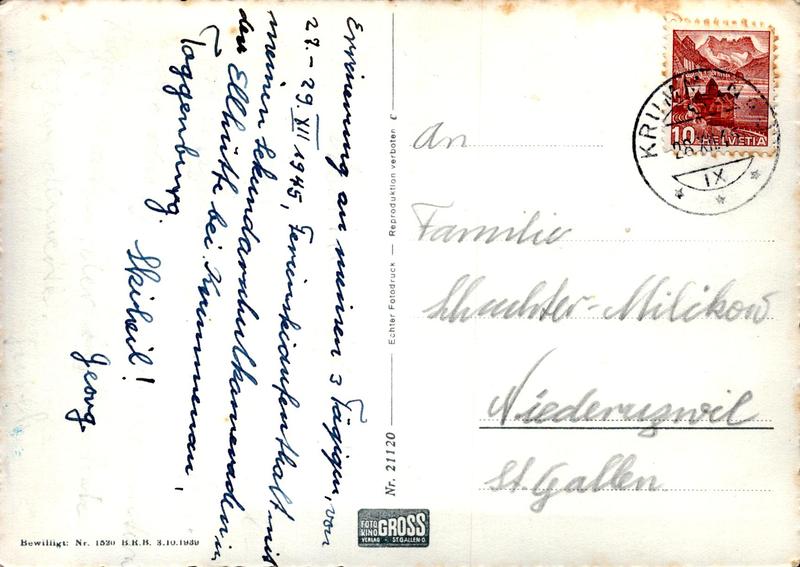 Erinnerung an meinen 3 Tägigen, von
27.-29. XII 1945, Ferienskiaufenthalt mit
meinen Sekundarschulkameraden in
der Ellhütte bei Krummenau,
Toggenburg.
Skiheil!
Georg.
Bewilligt: Nr. 1520 B.R.B. 3.10.1939
Nr. 21120
Echter Fotodruck — Reproduktion verboten
FOTO KINO GROSS
VERLAG - ST.GALLEN O.
10 HELVETIA
KRUMMENAU
IX
An
Familie
Schachter-Milikow
Niederuzwil
St. Gallen